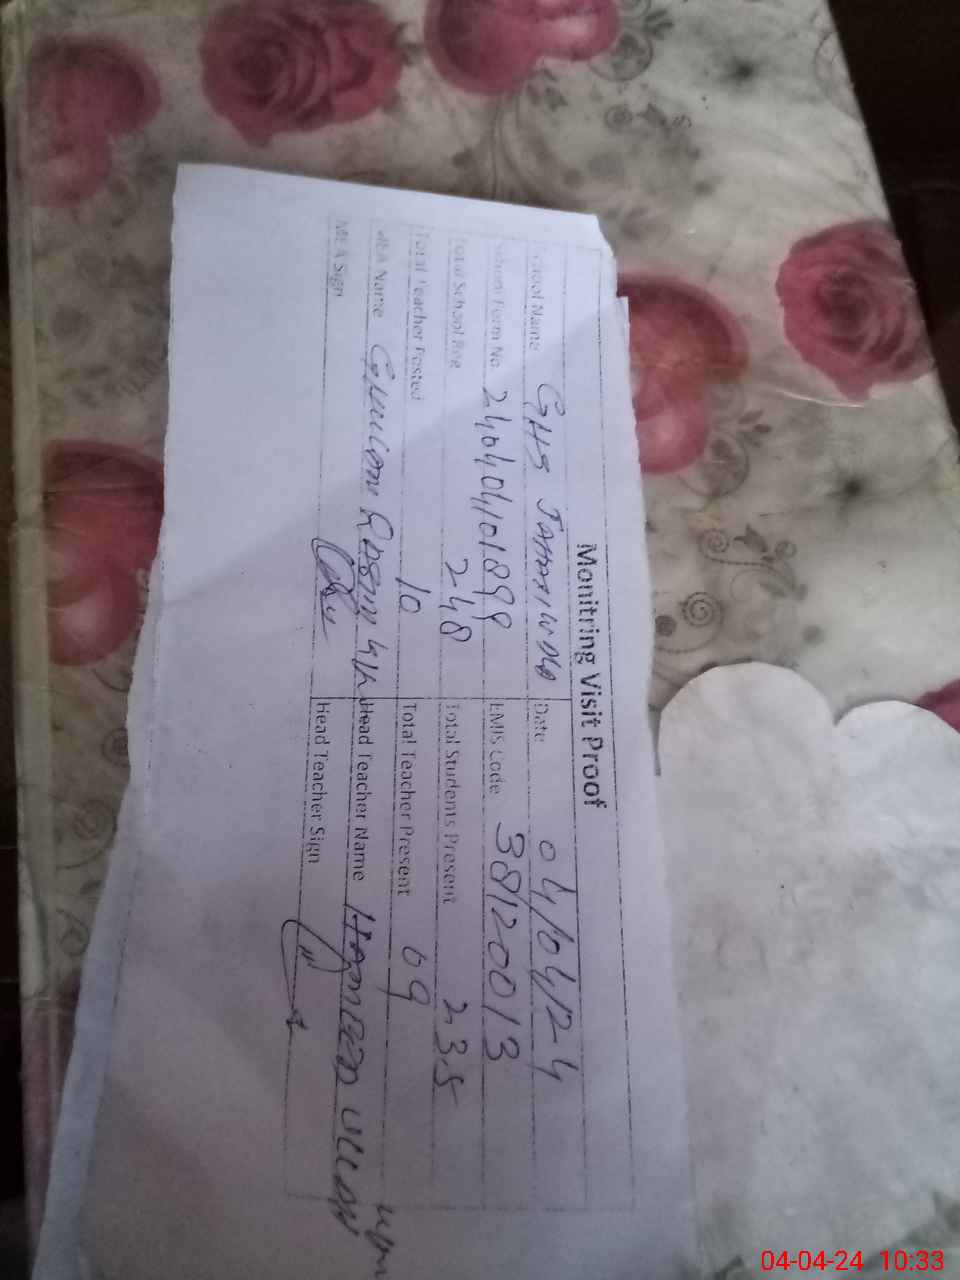 Monitring Visit Proof
School Name GHS Date 04/04/24
School Form No. 24040401899 EMIS Code 38120013
Total School Reg 248 Total Students Present 235
Total Teacher Posted 10 Total Teacher Present 09
MEA Name Head Teacher Name
MEA Sign Head Teacher Sign
04-04-24 10:33